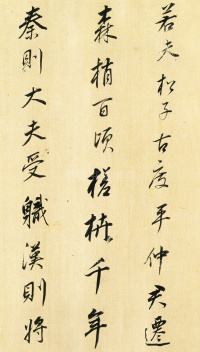 若夫松子古度平仲君遷
森梢百頃槎枿千年
秦則大夫受職漢則將